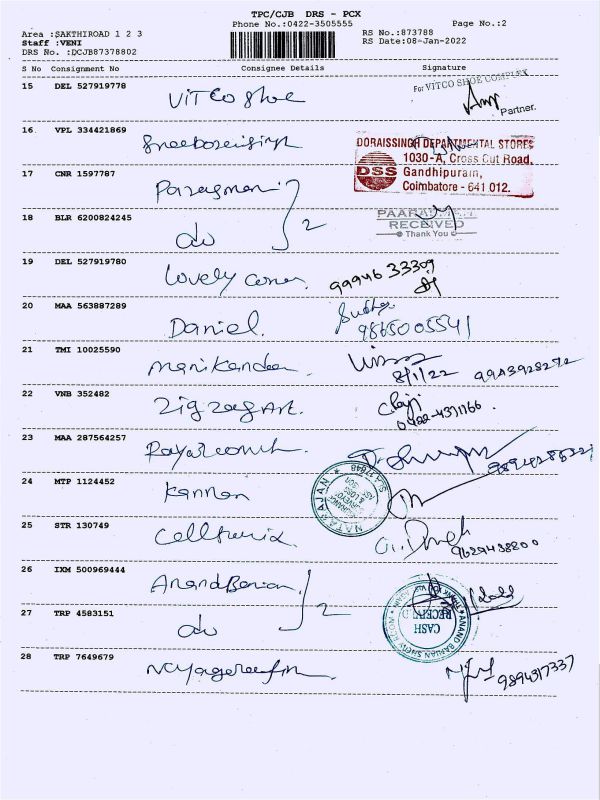 TPC/CJB DRS - PCX
Phone No.:0422-3505555
Page No.:2
Area :SAKTHIROAD 1 2 3
RS No.:873788
Staff :VENI
RS Date:08-Jan-2022
DRS No. :DCJB87378802
S No Consignment No Consignee Details Signature
15 DEL 527919778 Vitco Shoe
For VITCO SHOE COMPLEX
Partner.
16 VPL 334421869
DORAISSINGH DEPARTMENTAL STORES
1030-A, Cross Cut Road,
DSS Gandhipuram,
Coimbatore - 641 012.
17 CNR 1597787
18 BLR 6200824245 do 2
RECEIVED
Thank You
19 DEL 527919780 Lovely Corner 99946 33309
20 MAA 563887289 Daniel. Sudha
9865005541
21 TMI 10025590 Manikandan
8/1/22 9943928272
22 VNB 352482 Zigzag Art.
0422-4371166.
23 MAA 287564257
24 MTP 1124452 Kannan
NATARAJAN
25 STR 130749 Celltronix
9629438800
26 IXM 500969444 Anand Banian
27 TRP 4583151 do 2
CASH
RECEIVED
ANAND BANIAN SHOW ROOM
28 TRP 7649679
9894317337